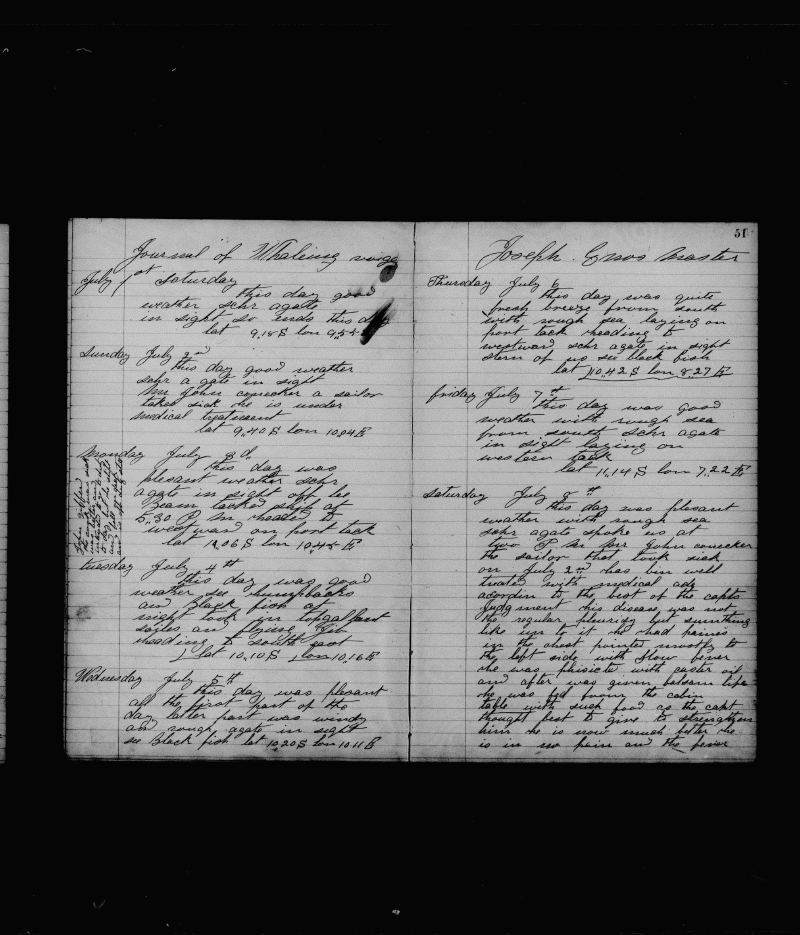 Journal of Whaleing voige
July 1st Saturday
this day good
weather schr agate
in sight so ends this day
lat 9,18 S lon 9,54
Sunday July 2nd
this day good weather
schr a gate in sight
Mr John conecker a sailor
taken sick he is under
medical treatment
lat 9,40 S lon 10,04 E
Monday July 3d
this day was
plesant weather schr
agate in sight off lee
beam tacked ship at
5,30 P M headed to
westward on port tack
lat 11,06 S lon 10,45 E
tuesday July 4th
this day was good
weather see humpbacks
and Black fish at
night took in topgallant
sailes and flying Jib
heading to south
lat 10,10 S lon 10,16 E
Wednesday July 5th
this day was plesant
all the first part of the
day latter part was windy
and rough agate in sight
see Black fish lat 10,20 S lon 10,11 E
51
Joseph Enos Master
Thursday July 6
this day was quite
fresh breeze from south
with rough sea laying on
port tack heading to
westward schr agate in sight
stern of us see black fish
lat 10,42 S lon 8,27 E
friday July 7th
this day was good
weather with rough sea
from south schr agate
in sight laying on
western tack
lat 11,14 S lon 7,22 E
Saturday July 8th
this day was plesant
weather with rough sea
schr agate spoke us at
two P M Mr John conecker
the sailor that took sick
on July 2nd has bin well
treated with medical
acordin to the best of the capts
Judgment his disease was not
the regular pleurisy but sumthing
like un to it he had paines
in the chest pointed mostly to
the left side with slow fever
he was phisict with caster oil
and after was given balsam
he was fed from the cabin
table with such food as the capt
thought best to give to strengthen
him he is now much better he
is in no pain and the fever